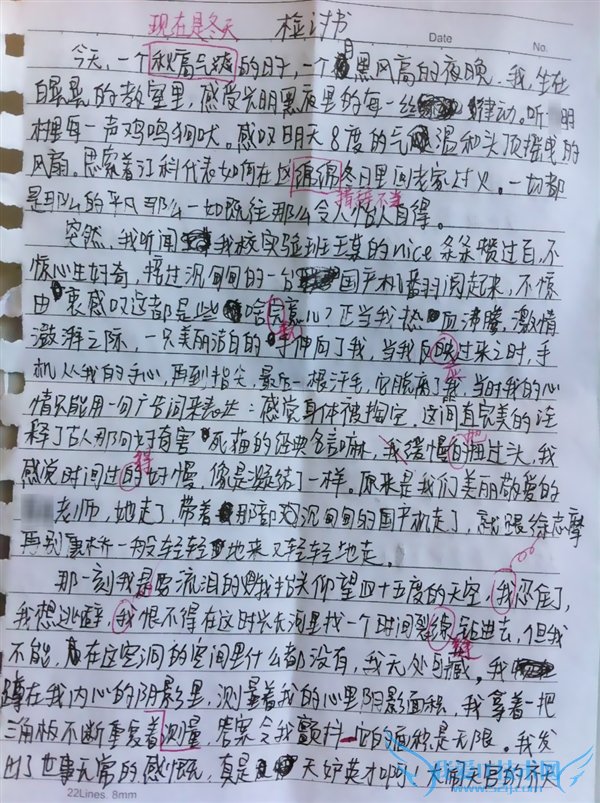 现在是冬天 检讨书
Date No.
今天,一个秋高气爽的日子,一个月黑风高的夜晚,我,坐在
的教室里,感受光明黑夜里的每一丝律动。听 明
村里每一声鸡鸣狗吠。感叹明天8度的气温和头顶摇曳的
风扇。思索着江科代表如何在这 冬日里回老家过火。一切都
措辞不当
是那么的平凡那么一如既往那么令人怡然自得。
突然,我听闻我校实验班王某的nice 条条横过百,不
惊心生好奇,接过沉甸甸的一台国产机番羽阅起来,不惊
由衷感叹这都是些啥玩意儿?正当我热血沸腾,激情
澎湃之际,一只美丽洁白的手伸向了我,当我反映过来之时,手
应
机从我的手心,再到指尖,最后一根汗毛,它脱离了我,当时我的心
情只能用一句广告词来表达:感觉身体被掏空。这简直完美的注
释了古人那句好奇害死猫的经典名言嘛,我缓慢的扭过头,我
地
得
感觉时间过的好慢,像是凝结了一样。原来是我们美丽敬爱的
老师,她走了,带着那部沉甸甸的国产机走了,就跟徐志摩
再别康桥一般轻轻地来又轻轻地走。
那一刻我是要流泪的 我抬头仰望四十五度的天空,我忍住了,
我想逃避,我恨不得在这时光长河里找一个时间裂缝钻进去,但我
缝
不能,在这空洞的空间里什么都没有,我无处可藏。我
蹲在我内心的阴影里,测量着我的心里阴影面积,我拿着一把
三角板不断重复着测量,答案令我颤抖—它的面积是无限。我发
出了世事无常的感慨,真是天妒英才啊!大闹天宫的齐天
22Lines. 8mm